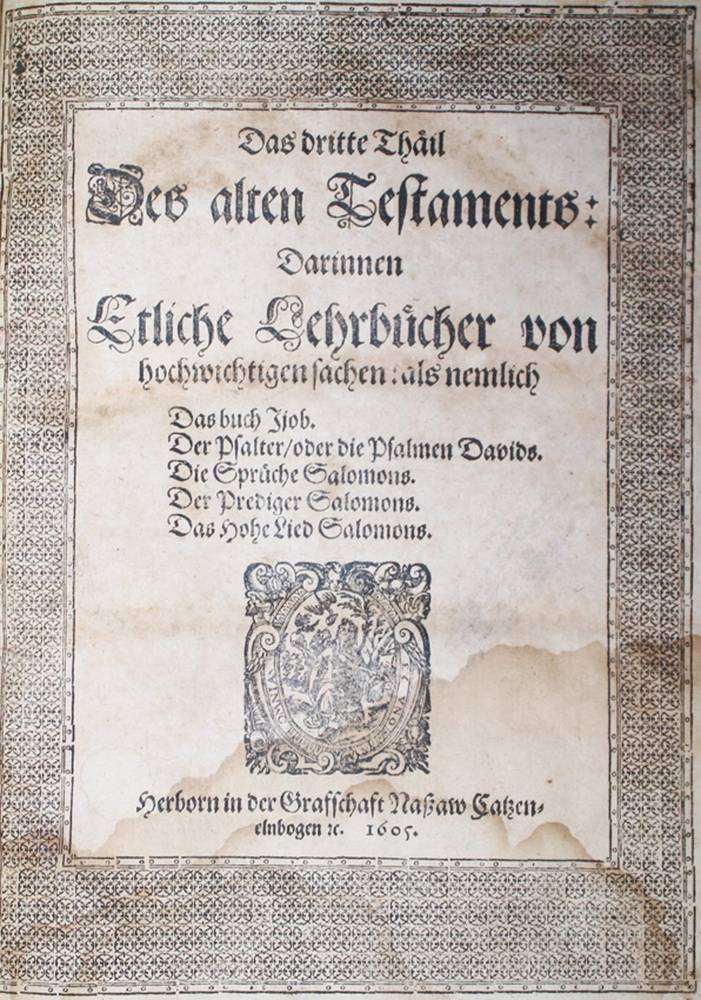 Das dritte Thåil
Des alten Testaments:
Darinnen
Etliche Lehrbůcher von
hochwichtigen sachen: als nemlich
Das buch Ijob.
Der Psalter/oder die Psalmen Davids.
Die Sprůche Salomons.
Der Prediger Salomons.
Das Hohe Lied Salomons.
Herborn in der Graffschaft Naßaw Catzen-
elnbogen ꝛc. 1605.